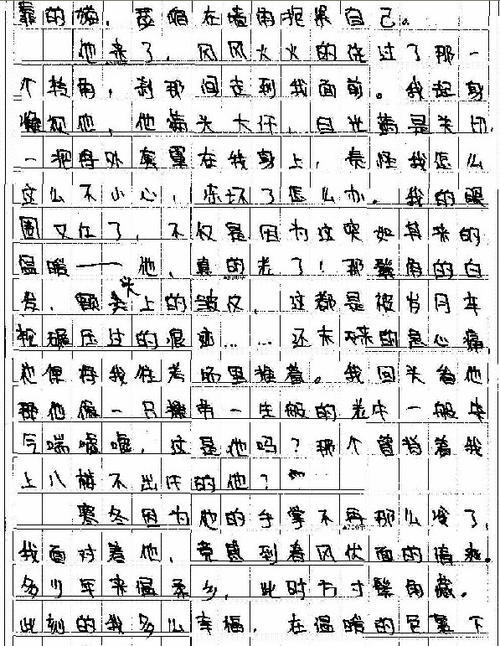 靠的猫，蜷缩在墙角抱紧自己。
他来了，风风火火的住过了那一
个转角，刹那间走到我面前。我起身
他，他满头大汗，目光满是关切，
一把将外套罩在我身上，责怪我怎么
这么不小心，冻坏了怎么办。我的眼
圈又红了，不仅是因为这突如其来的
温暖——他，真的老了！那鬓角的白
发，额头上的皱皮，这都是被岁月车
轮碾压过的痕迹……还未来的急心痛
他便将我往着场里推着。我回头看他
那他像一只一生般的老牛一般
气喘嘘嘘，这是他吗？那个曾背着我
上八楼不出汗的他？
寒冬因为他的手掌不再那么冷了，
我面对着他，竟感到春风伏面的
多少年来温柔乡，此时方寸鬓角藏。
此刻的我多么幸福，在温暖的色幕下